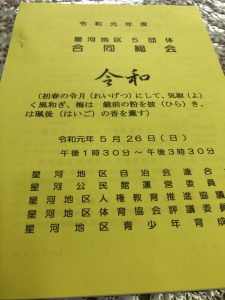 令和元年度
星河地区5団体
合同総会
令和
(初春の令月(れいげつ)にして、気淑(よ)
く風和ぎ、梅は 鏡前の粉を披(ひら)き、
は珮後(はいご)の香を薫す)
令和元年5月26日(日)
午後1時30分~午後3時30分
星河地区自治会連合
星河公民館運営委員
星河地区人権教育推進協議
星河地区体育協会評議委員
星河地区青少年育成